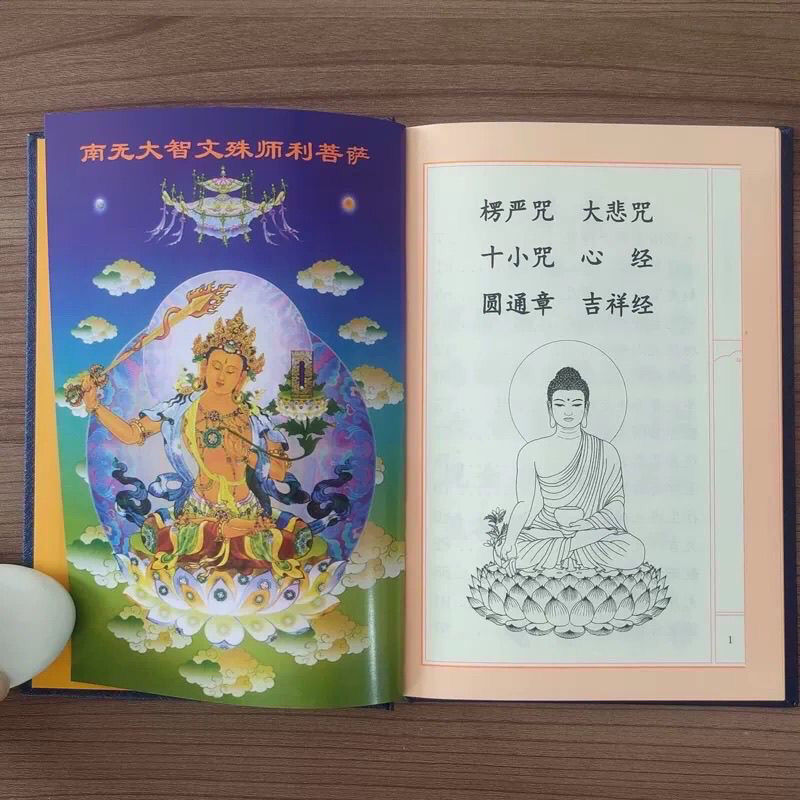 南无大智文殊师利菩萨
楞严咒 大悲咒
十小咒 心 经
圆通章 吉祥经
1